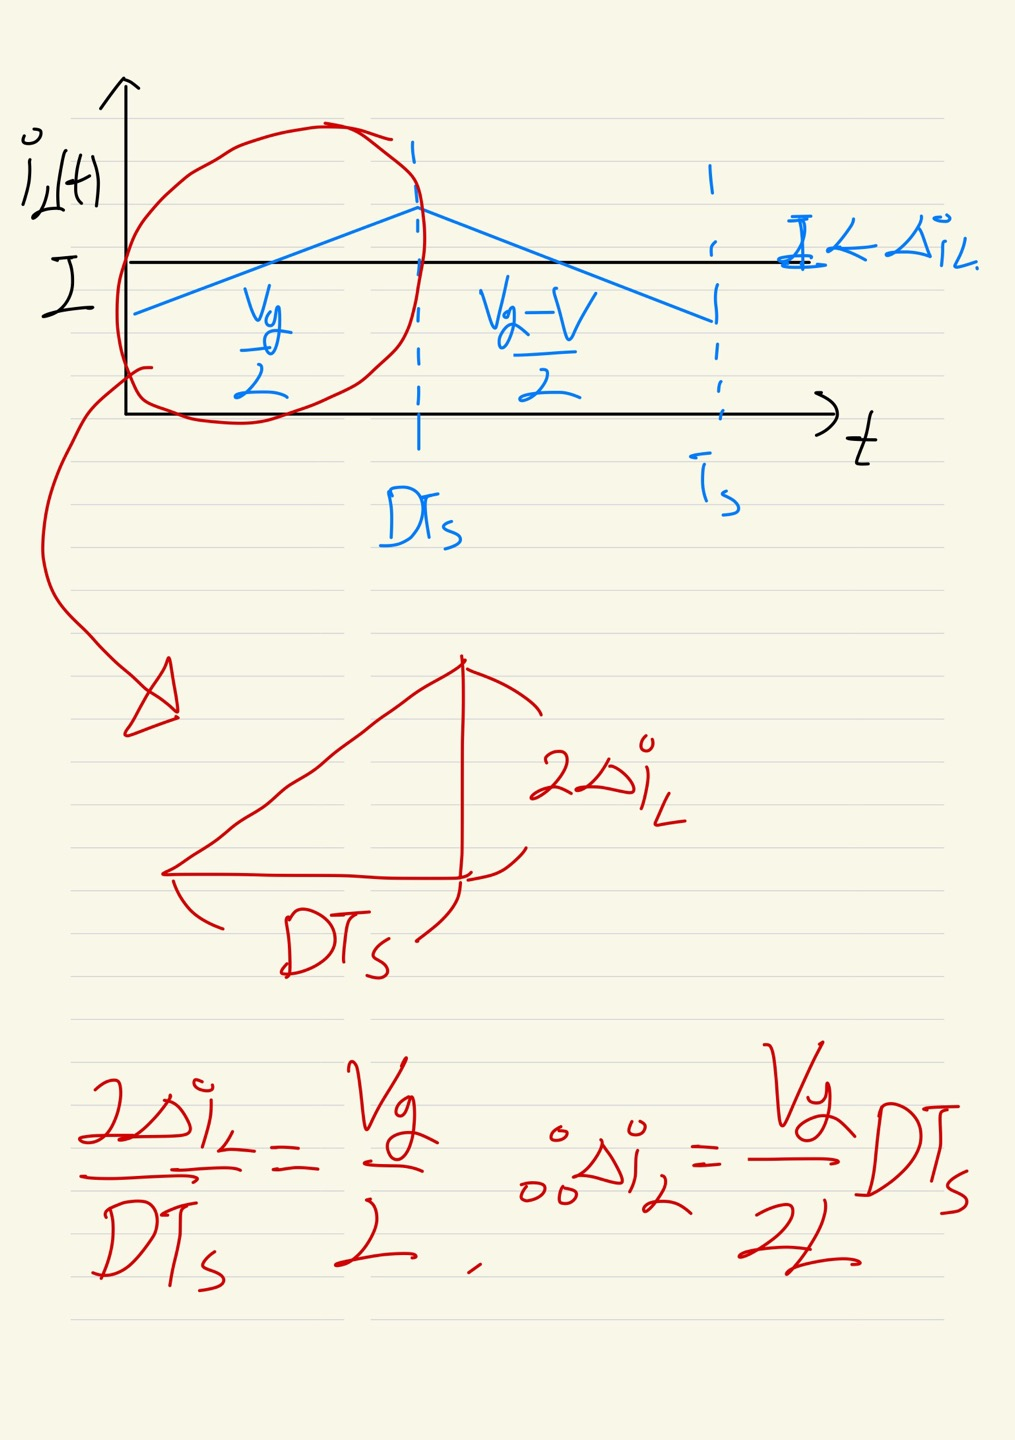 i_L(t)
I
I < Δi_L
V_g/L
(V_g-V)/L
DT_s
T_s
t
2Δi_L
DT_s
2Δi_L/DT_s = V_g/L , ∴ Δi_L = V_g/2L DT_s